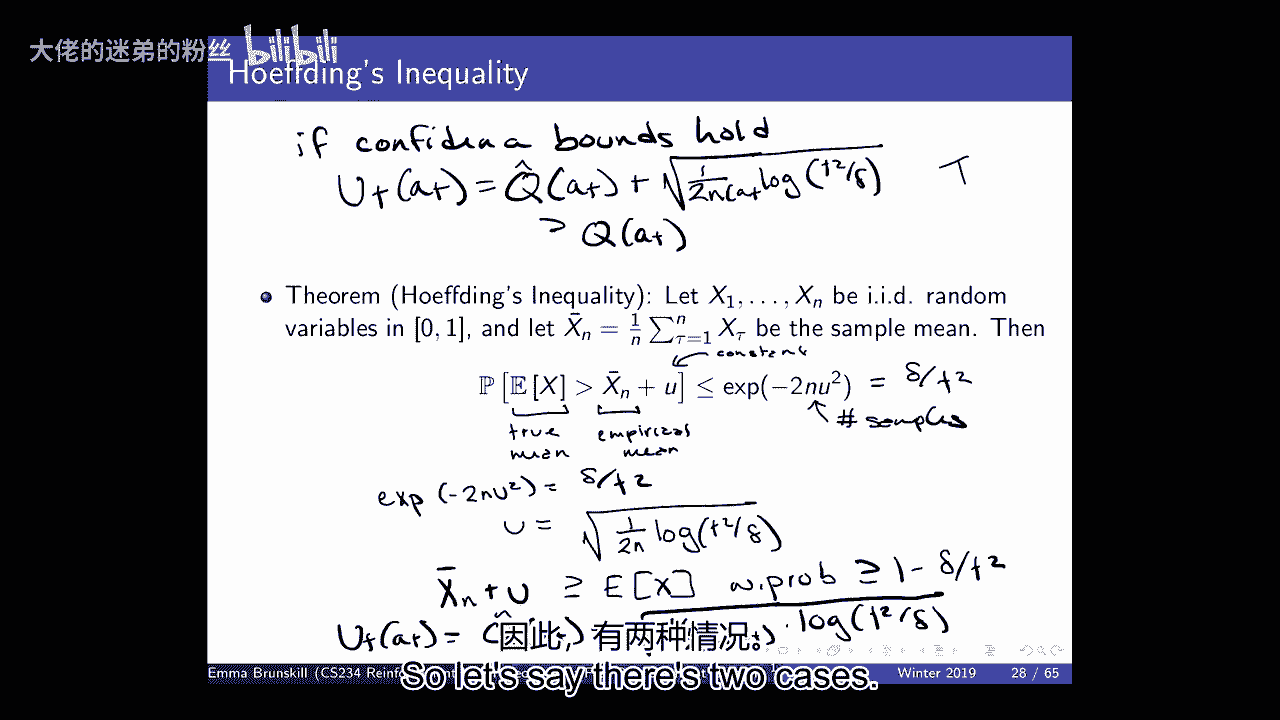 大佬的迷弟的粉丝 bilibili
Hoeffding's Inequality
if confidena bounds hold
U_t(a_t) = Q̂(a_t) + √(1/2n(a_t) log(t²/δ)) T
> Q(a_t)
Theorem (Hoeffding's Inequality): Let X₁, . . . , Xₙ be i.i.d. random
variables in [0, 1], and let X̄ₙ = 1/n ∑ⁿ_τ=1 X_τ be the sample mean. Then
constant
ℙ [𝔼 [X] > X̄ₙ + u] ≤ exp(−2nu²) = δ/t²
true empirical # samples
mean mean
exp (-2nu²) = δ/t²
u = √(1/2n log(t²/δ))
X̄ₙ + u ≥ E[X] w.prob ≥ 1 - δ/t²
U_t(a_t) = · log(t²/δ)
因此,有两种情况。
Emma Brunskill (CS234 Reinf Winter 2019 28 / 65
So let's say there's two cases.